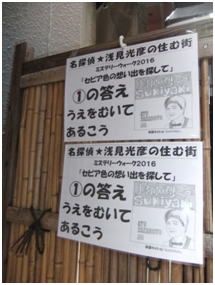 名探偵★浅見光彦の住む街
ミステリーウォーク2016
「セピア色の想い出を探して」
①の答え
うえをむいて
あるこう
SUKIYAKI
名探偵★浅見光彦の住む街
ミステリーウォーク2016
「セピア色の想い出を探して」
①の答え
うえをむいて
あるこう
Sukiyaki